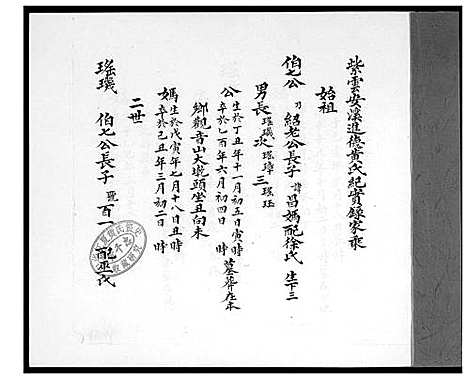 紫雲安溪進德黃氏紀實錄家乘
始祖
伯七公 乃紹老公長子 諱昌媽配徐氏 生下三
男長瑤璣次瑤璋三瑤珏
公生於丁丑年十一月初五日寅時
卒於乙酉年六月初四日 時 墓葬在本
鄉觀音山大墘頭坐丑向未
媽生於戊寅年七月十八日丑時
卒於己丑年三月初二日 時
二世
瑤璣 伯七公長子 號百一 配巫氏